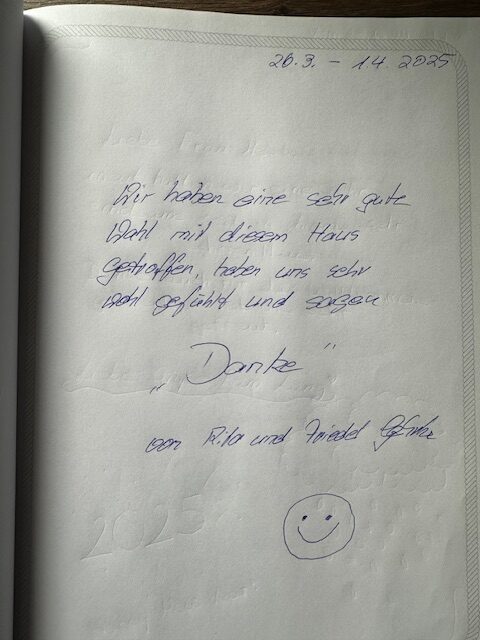 26.3. - 1.4. 2025
Wir haben eine sehr gute
Wahl mit diesem Haus
getroffen, haben uns sehr
wohl gefühlt und sagen
„Danke"
von Rita und Friedel
2025